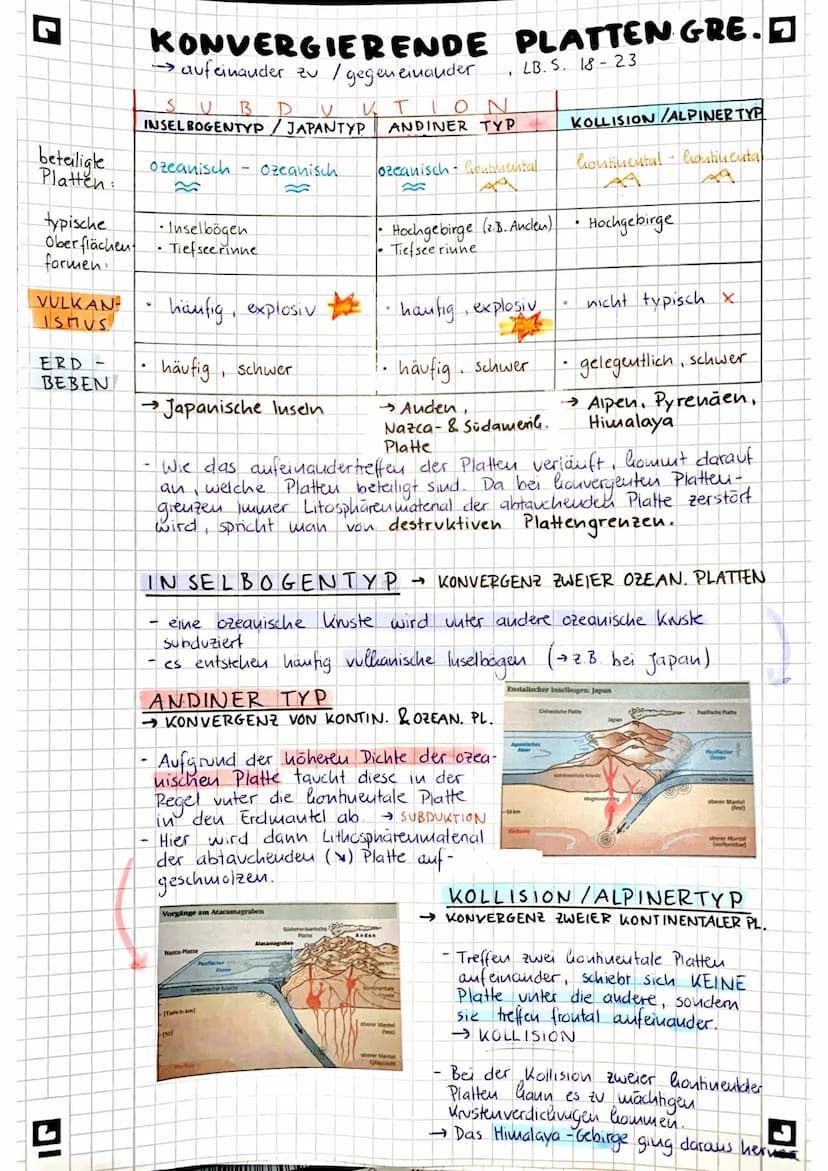 KONVERGIERENDE PLATTENGRE.
→ aufeinander zu / gegeneinander , LB. S. 18-23
SUBDUKTION
INSELBOGENTYP / JAPANTYP
ANDINER TYP
KOLLISION/ALPINERTYP
beteiligte
Platten:
ozeanisch - ozeanisch
ozeanisch - kontinental
kontinental - kontinental
typische
Oberflächen
formen:
• Inselbögen
• Tiefseerinne
• Hochgebirge (z.B. Anden)
• Tiefseerinne
• Hochgebirge
VULKAN-
ISMUS
• häufig, explosiv
• häufig, explosiv
• nicht typisch x
ERD-
BEBEN
• häufig, schwer
• häufig, schwer
• gelegentlich, schwer
→ Japanische Inseln
→ Anden,
Nazca- & Südamerik.
Platte
→ Alpen, Pyrenäen,
Himalaya
- Wie das aufeinandertreffen der Platten verläuft, kommt darauf
an, welche Platten beteiligt sind. Da bei konvergenten Platten-
grenzen immer Litosphärenmaterial der abtauchenden Platte zerstört
wird, spricht man von destruktiven Plattengrenzen.
INSELBOGENTYP → KONVERGENZ ZWEIER OZEAN. PLATTEN
- eine ozeanische Kruste wird unter andere ozeanische Kruste
subduziert
- es entstehen häufig vulkanische Inselbögen (→ z.B. bei Japan)
ANDINER TYP
→ KONVERGENZ VON KONTIN. & OZEAN. PL.
- Aufgrund der höheren Dichte der ozea-
nischen Platte taucht diese in der
Regel unter die kontinentale Platte
in den Erdmantel ab. → SUBDUKTION
- Hier wird dann Lithosphärenmaterial
der abtauchenden (↘) Platte auf-
geschmolzen.
Ensialischer Inselbogen: Japan
Chinesische Platte
Japan
Pazifische Platte
Japanisches
Meer
Pazifischer
Ozean
kontinentale Kruste
ozeanische Kruste
Magmaaufstieg
- 50 km
oberer Mantel
(fest)
oberer Mantel
(verformbar)
Vorgänge am Atacamagraben
Südamerikanische
Platte
Anden
Atacamagraben
Nazca-Platte
Pazifischer
Ozean
ozeanische Kruste
kontinentale
Kruste
- (Tiefe in km)
oberer Mantel
(fest)
oberer Mantel
KOLLISION/ALPINERTYP
→ KONVERGENZ ZWEIER KONTINENTALER PL.
- Treffen zwei kontinentale Platten
aufeinander, schiebt sich KEINE
Platte unter die andere, sondern
sie treffen frontal aufeinander.
→ KOLLISION
- Bei der Kollision zweier kontinentaler
Platten kann es zu mächtigen
Krustenverdickungen kommen.
→ Das Himalaya-Gebirge ging daraus hervor